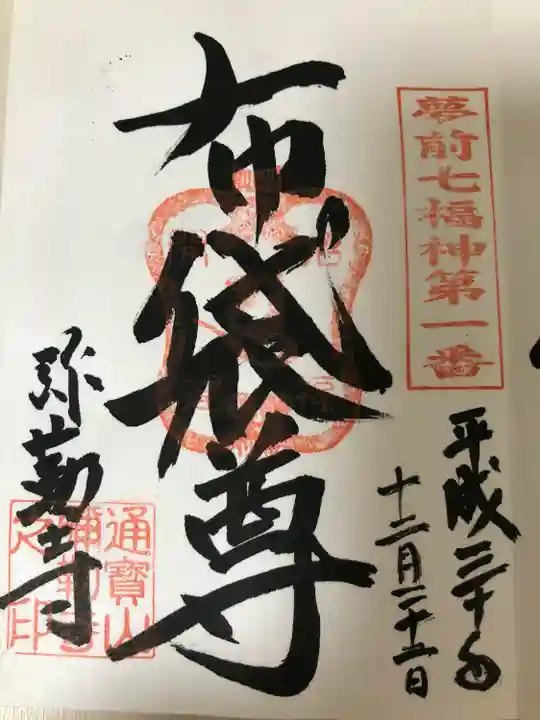 夢前七福神第一番
平成三十年
十二月二十二日
布袋尊
弥勒寺
通寳山
彌勒寺
之印